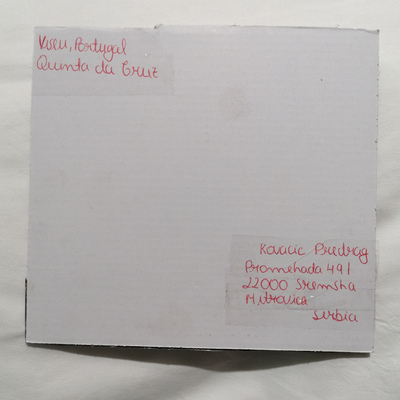 Viseu, Portugal
Quinta da Cruz
Kovacic Predrag
Promenada 49/
22000 Sremska
Mitrovica
Serbia